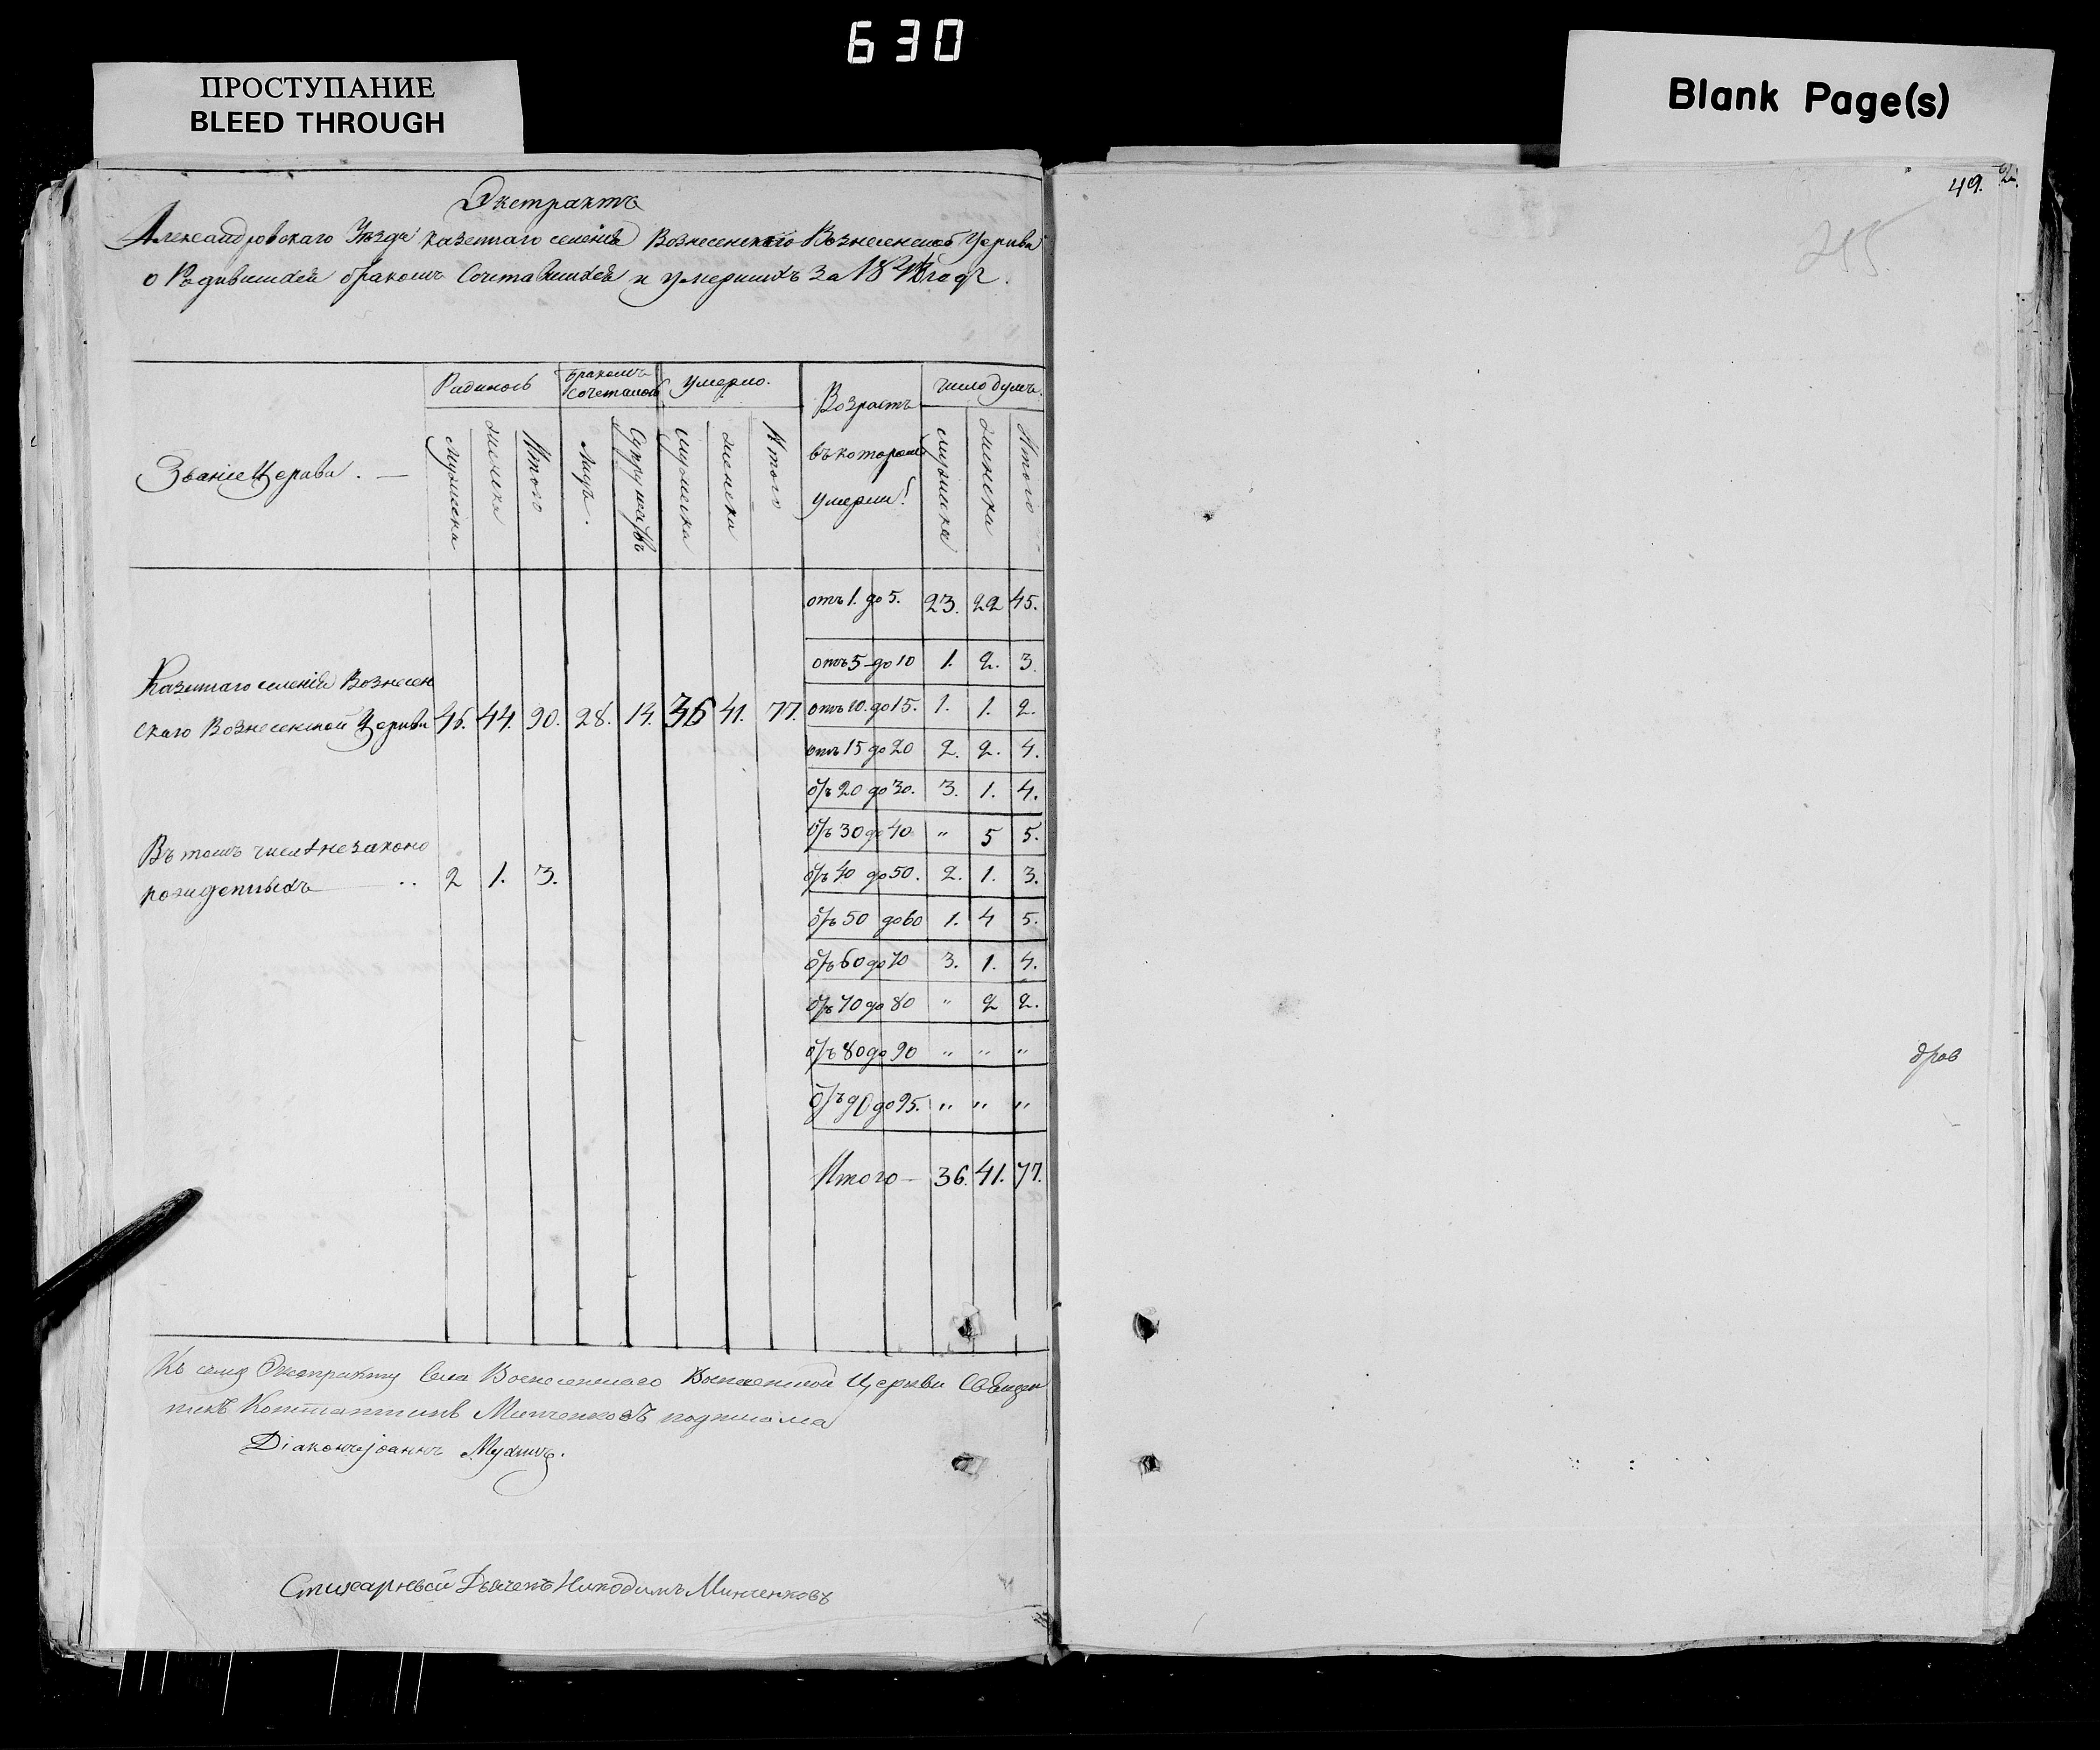 630
ПРОСТУПАНИЕ
BLEED THROUGH
Blank Page(s)
49.
2.
215
Экстрактъ
Александровскаго Уѣзда казеннаго селенія Вознесенскаго Вознесенской Церкви
о Родившихся бракомъ Сочетавшихся и умершихъ за 18 годъ.
Званіе Церкви. —
Родилось
бракомъ сочеталось
умерло.
Возрастъ въ которомъ умерли
число душъ.
мужеска
женска
Итого
Лицъ.
Супружествъ
мужеска
женска
Итого
мужеска
женска
Итого
отъ 1. до 5. 23. 22 45.
отъ 5 до 10 1. 2. 3.
Казеннаго селенія Вознесен
скаго Вознесенской Церкви 46. 44. 90. 28. 14. 36 41. 77.
отъ 10. до 15. 1. 1. 2.
отъ 15 до 20 2. 2. 4.
отъ 20 до 30. 3. 1. 4.
отъ 30 до 40 " 5 5.
Въ томъ числѣ незаконо
рожденныхъ .. 2 1. 3.
отъ 40 до 50. 2. 1. 3.
отъ 50 до 60 1. 4 5.
отъ 60 до 70 3. 1. 4.
отъ 70 до 80 " 2 2.
отъ 80 до 90 " " "
отъ 90 до 95. " " "
Итого — 36. 41. 77.
Къ сему Экстракту Села Вознесенскаго Вознесенской Церкви Священ
никъ Константинъ Минченковъ
Діаконъ Іоаннъ
Стихарный Дьячекъ Никодимъ Минченковъ